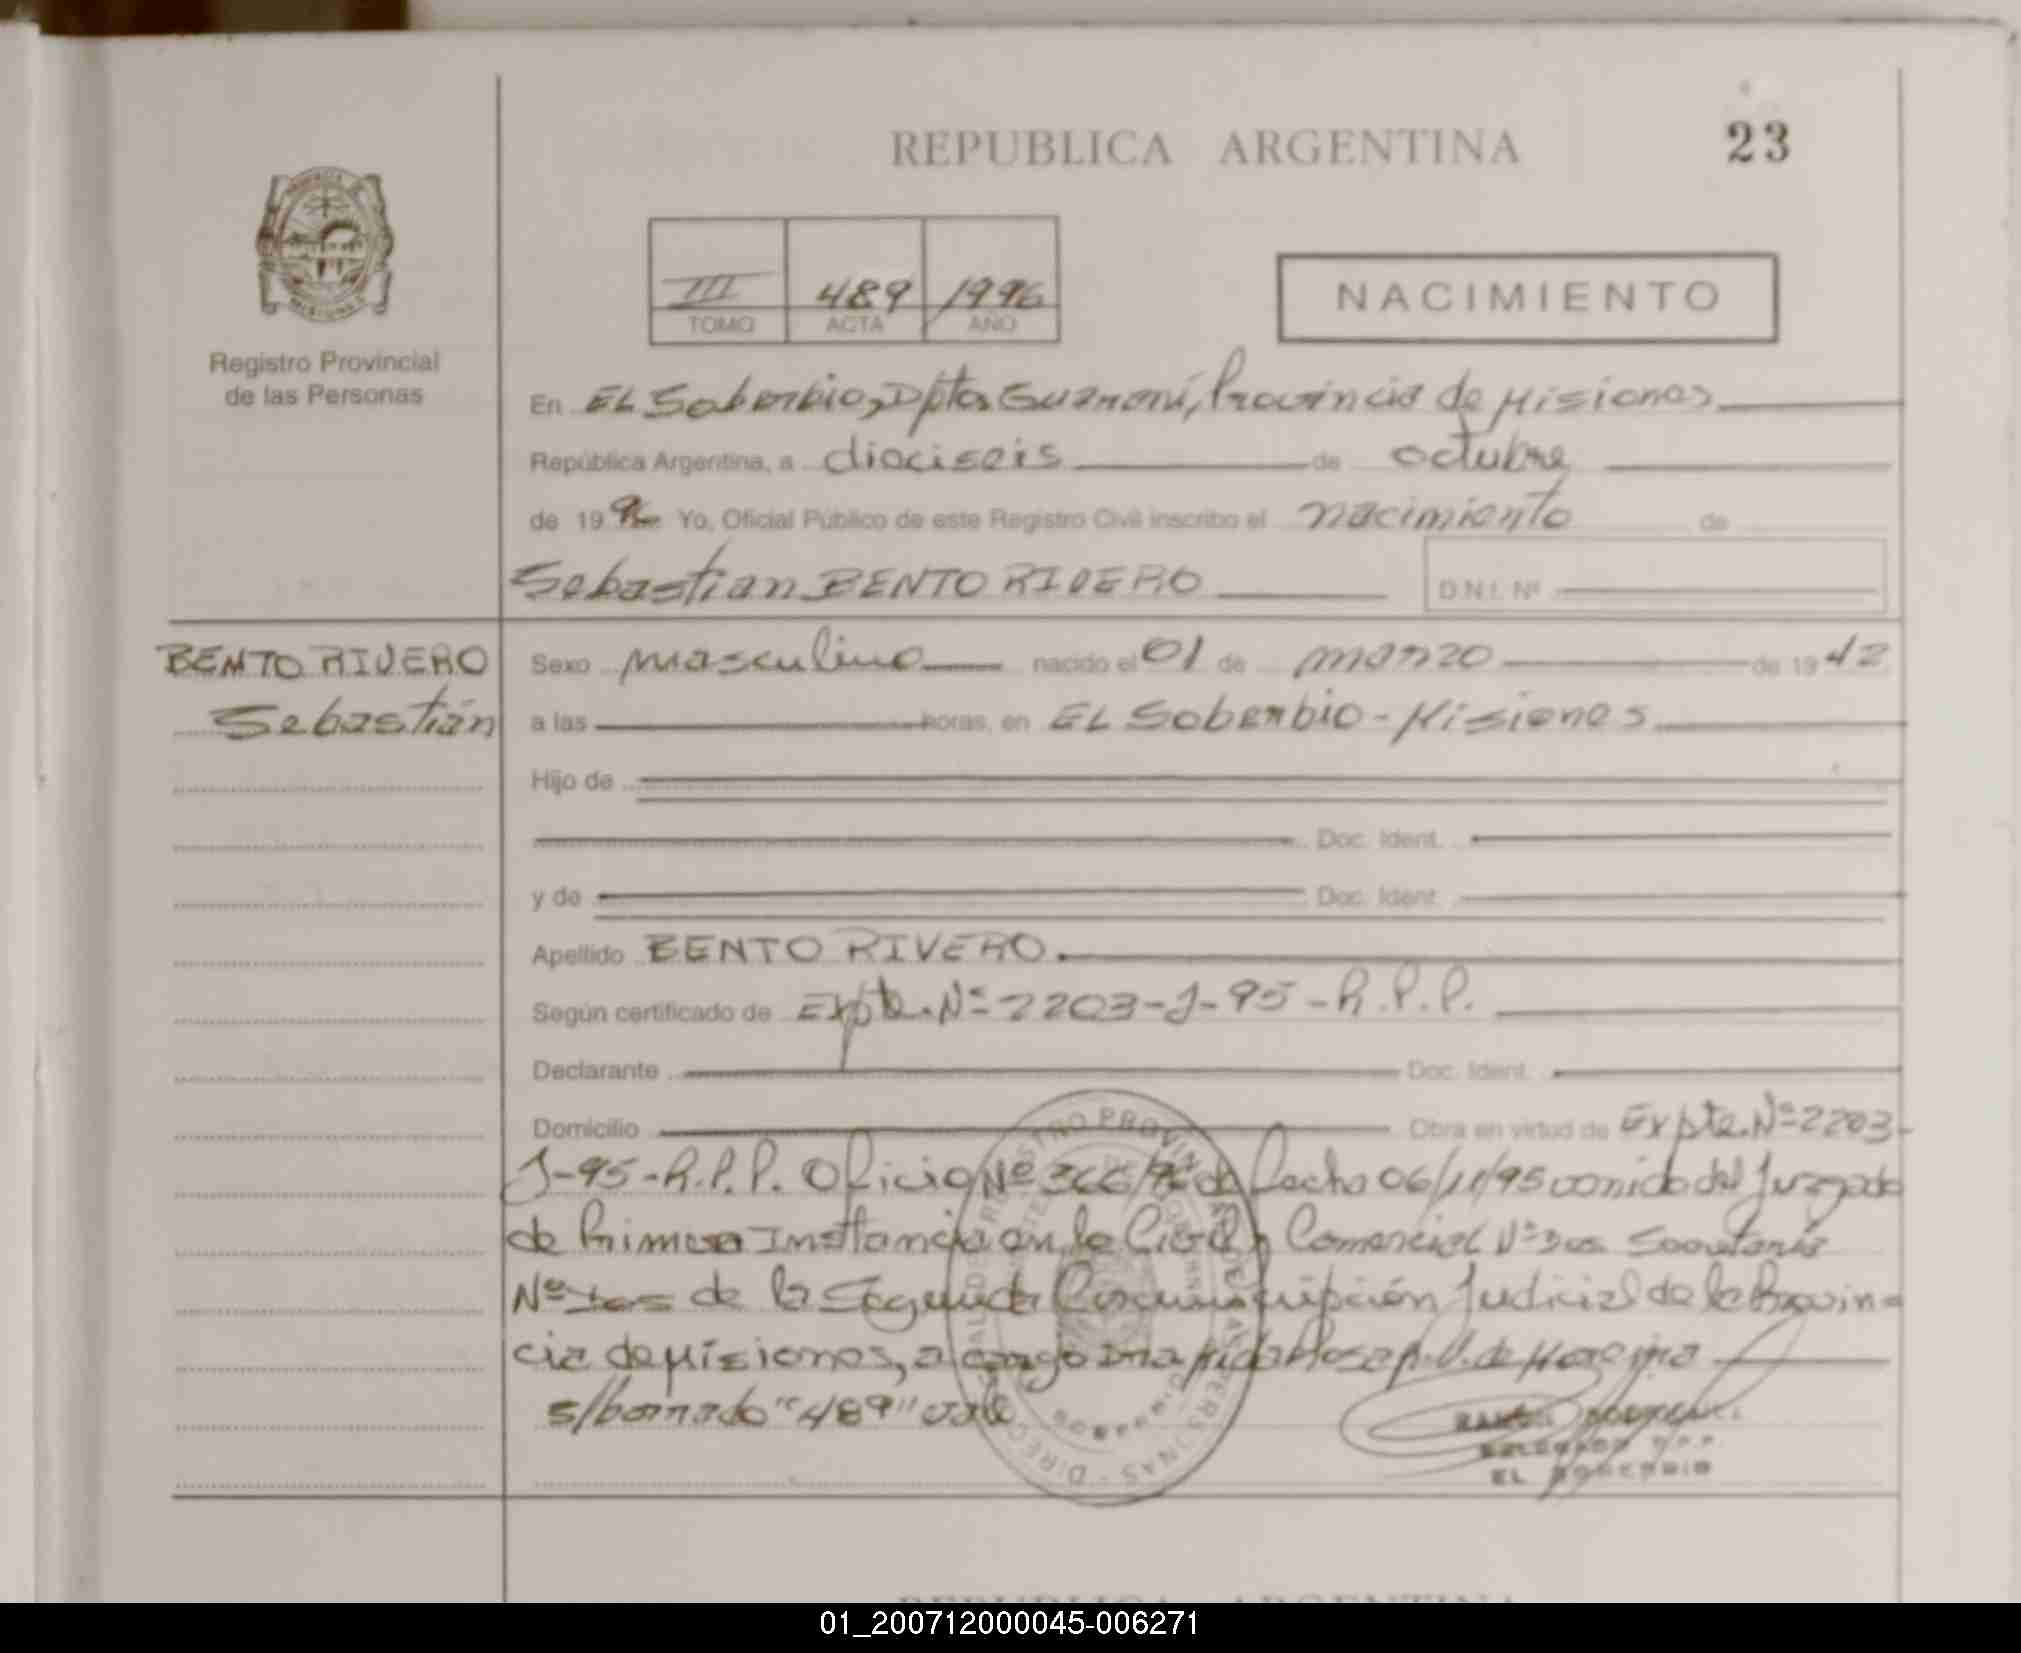 REPUBLICA ARGENTINA
23
Registro Provincial
de las Personas
III 489 1996
TOMO ACTA AÑO
NACIMIENTO
En EL Soberbio, Dpto Guaraní, Provincia de Misiones
República Argentina, a dieciseis de octubre
de 1996 Yo, Oficial Público de este Registro Civil inscribo el nacimiento de
Sebastian BENTO RIVERO D.N.I. Nº
BENTO RIVERO
Sebastián
Sexo masculino nacido el 01 de marzo de 1942
a las horas, en EL Soberbio - Misiones
Hijo de
Doc. Ident.
y de Doc. Ident.
Apellido BENTO RIVERO.
Según certificado de Expte. Nº 2203-J-95-R.P.P.
Declarante Doc. Ident.
Domicilio Obra en virtud de Expte. Nº 2203-
J-95-R.P.P. Oficio Nº de fecha 06/11/95 venido del Juzgado
de Primera Instancia en lo Civil y Comercial Nº Dos Secretaria
Nº Dos de la Segunda Circunscripción Judicial de la Provin-
cia de Misiones, a cargo Dra
s/borrado "489" vale
EL SOBERBIO
01_200712000045-006271